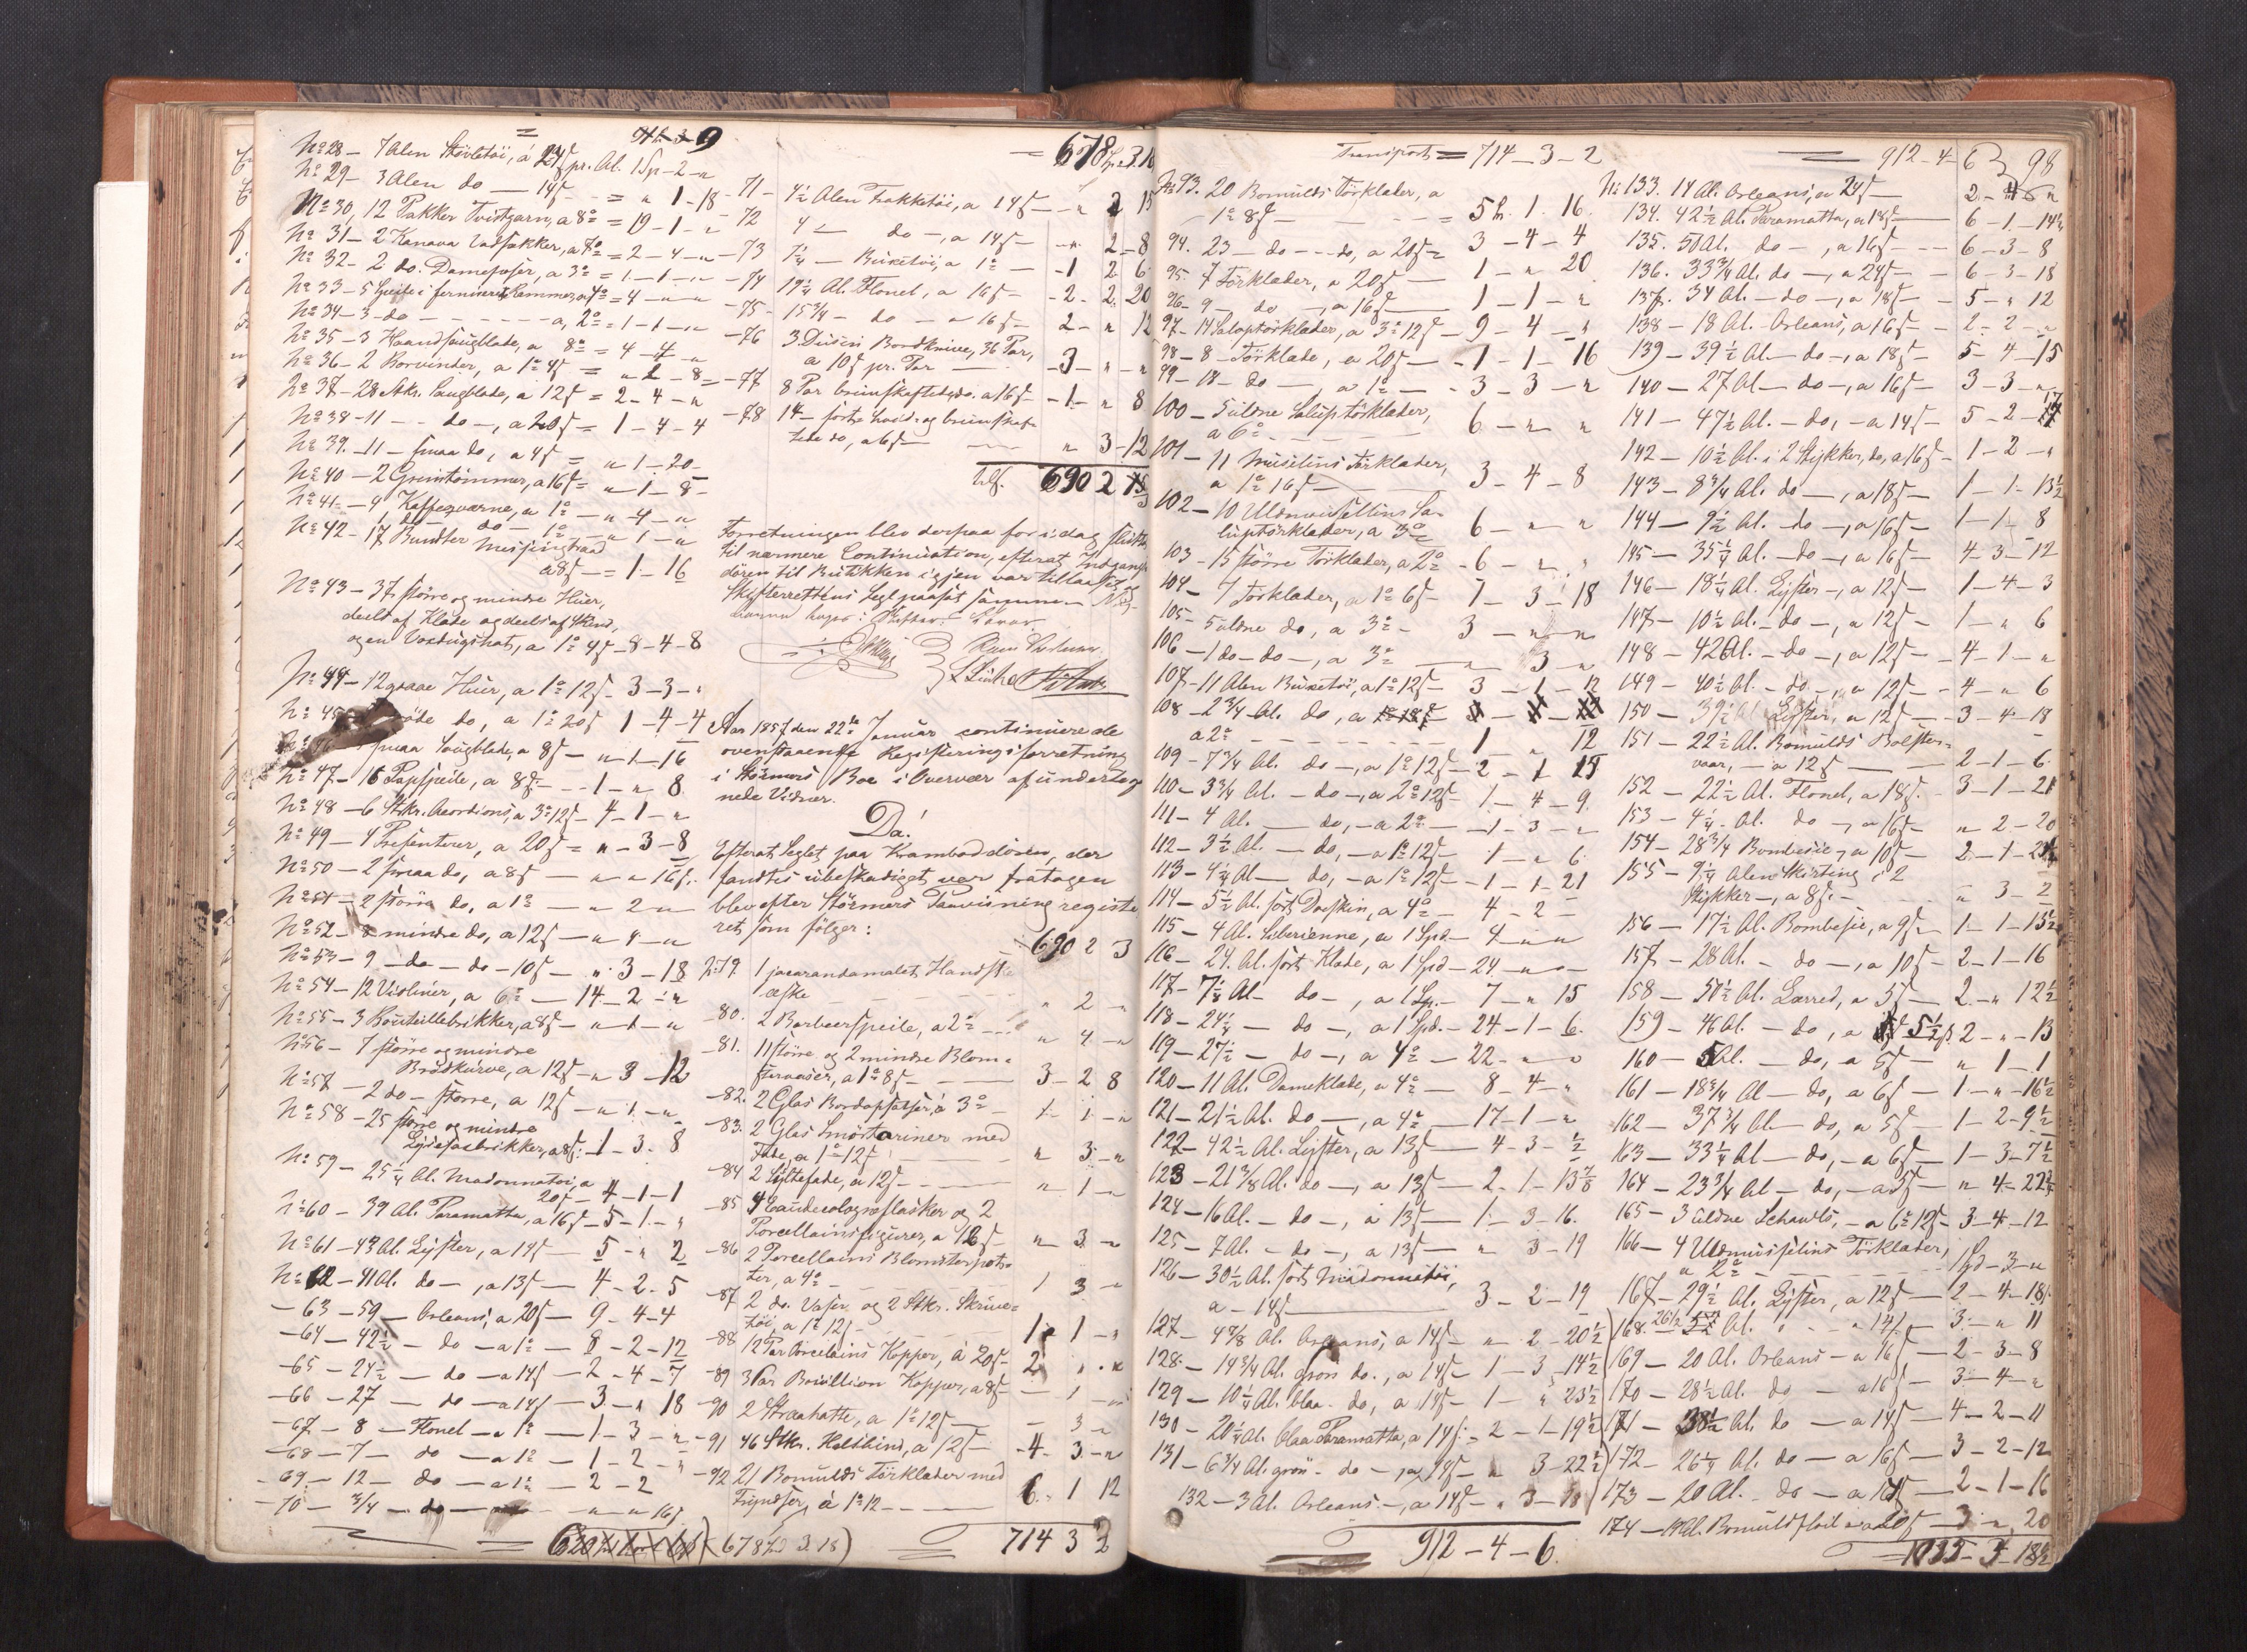 No 28 - 7 Alen Støvletøi, á 24 s pr. Al. 1 Sp - 2 - "
No 29 - 3 Alen do - 14 s = " 1 - 18
No 30, 12 Pakker Tvistgarn, a 8 = 19 - 1 - "
No 31 - 2 Kanava Vadsækker, a 7 = 2 - 4 - "
No 32 - 2 do. Dameposer, a 3 = 1 - 1 - "
No 33 - 5 Speile i ferniseret Rammer, a 4 = 4 - " - "
No 34 - 3 - do - - a, 2 = 1 - 1 - "
No 35 - 3 Haandsaugblade, a 8 = 4 - 4 - "
No 36 - 2 Borvinder, a 1 4 s = " 2 - 8
No 37 - 28 Stkr. Saugblade, a 12 s = 2 - 4 - "
No 38 - 11 - do -, a 20 s = 1 - 4 - 4
No 39 - 11 - smaa do, a 4 s = " 1 - 20
No 40 - 2 Griimtømmer, a 16 s = " 1 - 8
No 41 - 4 Kaffeqværne, a 1 - " 4 - "
do - do - 1 - " 1 - "
No 42 - 17 Bundter Messingtraad
a 8 s = 1 - 16
No 43 - 37 større og mindre Huer,
deels af Klæde og deels af Skind,
og en Voxdugshat, a 1 4 s - 8 - 4 - 8
No 44 - 12 graae Huer, a 1 12 s - 3 - 3 - "
No 45 røde do, a 1 20 s 1 - 4 - 4
smaa Saugblade, a 8 s - " 1 - 16
No 47 - 16 Papspeile, a 8 s - 1 - " 8
No 48 - 6 Stkr. Acordions, a 3 12 s - 4 - 1 - "
No 49 - 4 Presenterer, a 20 s = " - 3 - 8
No 50 - 2 smaa do, a 8 s - " " 16 s
No 51 - 2 større do, a 1 - " 2 "
No 52 - 8 mindre do, a 12 s - " 4 - "
No 53 - 9 - do - do - 10 s - " 3 - 18
No 54 - 12 Violiner, a 6 - 14 - 2 - "
No 55 - 3 Bouteillebrikker, a 8 s - " 1 - "
No 56 - 7 større og mindre
Brødkurve, a 12 s - " 3 - 12
No 57 - 2 do - større, a 12 s - " 1 - "
No 58 - 25 større og mindre
Lysesaxbrikker, a 8 s 1 - 3 - 8
No 59 - 25 1/4 Al. Madonnatøi, a
20 s - 4 - 1 - 1
No 60 - 39 Al. Paramatta, a 16 s - 5 - 1 - "
No 61 - 43 Al. Lyster, a 14 s - 5 - " 2
No 62 - 41 Al. do -, a 13 s - 4 - 2 - 5
- 63 - 59 - Orleans, a 20 s - 9 - 4 - 4
- 64 - 42 1/2 - do - a 1 - 8 - 2 - 12
- 65 - 24 1/2 - do - a 14 s - 2 - 4 - 7
- 66 - 27 - do - a 14 s - 3 - " 18
- 67 - 8 - Flonel - a 1 - 1 - 3 - "
- 68 - 7 - do - a 1 - 1 - 2 - "
- 69 - 12 - do - a 1 - 2 - 2
- 70 - 3/4 - do - " " 16 s
678 Spd 3. 18)
678 Sp. 3. 18
- 71 - 4 1/2 Alen Frakketøi, a 14 s - " 2 15
72 4 - do -, a 14 s - " 2 - 8
- 73 7 1/4 - Buxetøi, a 1 - 1 2 6
- 74 19 1/4 Al. Flonel, a 16 s - 2 - 2 20
- 75 - 15 3/4 - do - a 16 s - 2 - " 12
- 76 3 Dusin Bordknive, 36 Par,
a 10 s pr. Par - 3 - " - "
- 77 8 Par bruunskaftede do. a 16 s - 1 - " 8
- 78 14 - sorte hvid- og bruunskaf-
tede do, a 6 s - " 3 - 12
690 2 3
Forretningen blev derpaa for i dag sluttet
til nærmere Continuation, efterat Indgangs
døren til Butikken igjen var tillaaset og
Skifterettens Segl paasat samme
Aar 1857 den 22de Januar continuerede
ovenstaaende Registeringsforretning
i Størmers Boe i Overvær af underteg
nede Vidner.
Da!
Efterat Seglet paa Kramboddøren, der
fandtes ubeskadiget, var fratagen
blev efter Størmers Paavisning registe
ret, som følger:
690 2 3
No 79. 1 jacarandamalet Handske
æske " 2 - "
- 80. 2 Barbeerspeile, a 2 - " 4 - "
- 81. 11 større og 2 mindre Blom-
stervaser, a 1 8 s - 3 - 2 8
- 82. 2 Glas Bordopsatser, á 3 - 1 - 1 - "
- 83. 2 Glas Smørtæriner med
Fade, a 1 12 s " 3 - "
- 84 2 Syltefade, a 12 s - " 1 - "
- 85 4 Eaudecologneflasker og 2
Porcellainsfigurer, a 12 s " 3 - "
- 86 2 Porcellains Blomsterpot-
ter, a 4 1 3 - "
- 87 2 do. Vaser og 2 Stkr. Skrive-
tøi, a 1 12 s 1 1 - "
- 88 12 Par Porcelains Kopper, á 20 s - 2 " - "
- 89 3 Par Bouillion Kopper, a 8 s - 1 - "
- 90 2 Straahatte, a 1 12 s - 3 - "
- 91 46 Stkr. Kalskind, a 12 s - 4 - 3 - "
- 92 21 Bomulds Tørklæder med
Fryndser, á 1 12 - 6 - 1 12
714 3 2
Transport = 714 - 3 - 2
No 93. 20 Bomulds Tørklæder, a
1 8 s = 5 Sp. 1. 16.
94. 23 - do - do, a 20 s = 3 - 4 - 4
95. 7 Tørklæder, a 20 s - 1 - " 20
96 - 9 do -, a 16 s 1 - 1 - "
97 - 14 Salopstørklæder, a 3 12 s - 9 - 4 - "
98 - 8 - Tørklæde, a 20 s - 1 - 1 - 16
99 - 18 - do -, a 1 - 3 3 - "
100 - 5 uldne Salupstørklæder,
a 6 - 6 - " "
101 - 11 Muselins Tørklæder,
a 1 16 s - 3 - 4 - 8
102 - 10 Uldmusellins Sa-
lupstørklæder, a 3 6 - " - "
103 - 15 større Tørklæder, a 2 - 6 - " "
104 - 7 Tørklæder, a 1 6 s - 1 - 3 - 18
105 - 5 uldne do, a 3 - 3 - " - "
106 - 1 do - do -, a 3 - " 3 - "
107 - 11 Alen Buxetøi, a 1 12 s - 3 - 1 - 12
108 - 2 3/4 Al. do, a
a 2 - 1 " 12
109 - 7 3/4 Al. do -, a 1 12 s - 2 - 1 15
110 - 3 3/4 Al. - do -, a 2 12 s - 1 - 4 - 9
111 - 4 Al. - do, - a 2 - 1 - 3 - "
112 - 3 1/2 Al. - do, - a 1 12 s - 1 - " 6
113 - 4 1/4 Al - do, - a 1 12 s - 1 - 1 - 21
114 - 5 1/2 Al. sort Doeskin, a 4 - 4 - 2 -
115 - 4 Al. Siberienne, a 1 Spd - 4 - " "
116 - 24 Al. sort Klæde, a 1 Spd - 24 - " -
117 - 7 1/8 Al - do -, a 1 Sp. - 7 - " 15
118 - 24 1/4 - do -, a 1 Spd. - 24 - 1 - 6
119 - 27 1/2 - do -, a 4 - 22 - " "
120 - 11 Al. Dameklæde, a 4 - 8 - 4 - "
121 - 21 1/2 Al. do -, a 4 - 17 - 1 - "
122 - 42 1/2 Al. Lyster, a 13 s - 4 - 3 - 1/2
123 - 21 3/8 Al. do -, a 13 s - 2 - 1 - 13 7/8
124 - 16 Al. - do -, á 13 s - 1 - 3 - 16.
125 - 7 Al. - do -, a 13 s - " 3 - 19
126 - 30 1/2 Al. sort Madonnatøi,
a - 14 s 3 - 2 - 19
127 - 4 7/8 Al. Orleans, a 14 s - " 2 - 20 1/2
128 - 14 3/4 Al. grøn do., a 14 s - 1 - 3 14 1/2
129 - 10 1/4 Al. blaa - do, a 14 s - 1 - " 23 1/2
130 - 20 1/4 Al. blaa Paramatta, a 14 s - 2 - 1 - 19 1/2
131 - 6 3/4 Al. grøn - do -, a 14 s - " 3 - 22 1/2
132 - 3 Al. Orleans -, a 14 s - " 3 - 18
912 - 4 - 6.
912 - 4 - 6 98
No 133. 14 Al. Orleans, a 24 s
134. 42 1/2 Al. Paramatta, a 18 s 6 - 1 - 14
135. 50 Al. do -, a 16 s - 6 - 3 - 8
136. 33 3/4 Al. do -, a 24 s - 6 - 3 - 18
137. 34 Al. - do -, a 18 s - 5 - " 12
138 - 18 Al. Orleans, a 16 s - 2 - 2 - "
139 - 39 1/2 Al. - do -, a 18 s - 5 - 4 - 15
140 - 27 Al - do -, a 16 s - 3 - 3 - "
141 - 47 1/2 Al. - do, - a 14 s - 5 - 2 - 17
142 - 10 1/2 Al. i 2 Stykker, do, a 16 s - 1 - 2 - "
143 - 8 3/4 Al. do -, a 18 s - 1 - 1 - 13 1/2
144 - 9 1/2 Al. - do -, a 16 s - 1 - 1 - 8
145 - 35 1/4 Al. - do -, a 16 s - 4 - 3 - 12
146 - 18 1/4 Al. Lyster -, a 12 s - 1 - 4 - 3
147 - 10 1/2 Al. - do -, a 12 s - 1 - " 6
148 - 42 Al. - do -, a 12 s - 4 - 1 - "
149 - 40 1/2 Al. - do -, a 12 s - 4 - " 6
150 - 39 1/2 Al Lyster, a 12 s - 3 - 4 - 18
151 - 22 1/2 Al. Bomulds Bolster-
vaar, - a 12 s - 2 - 1 - 6
152 - 22 1/2 Al. Flonel, a 18 s - 3 - 1 - 21
153 - 4 1/4 Al. do -, a 16 s - " 2 - 20
154 - 28 3/4 Bombesie, a 10 s - 2 - 1 - 23 1/2
155 - 9 1/4 Alen Skirting i 2
Stykker -, a 8 s - " 3 - 2
156 - 17 1/2 Al. Bombesie, a 9 s - 1 - 1 - 13 1/2
157 - 28 Al. - do -, a 10 s - 2 - 1 - 16
158 - 50 1/2 Al. Lærred, a 5 s - 2 - " 12 1/2
159 - 46 Al. - do, a 5 1/2 s 2 - " - 13
160 - 5 Al. - do, a 5 s - " 1 - 1
161 - 18 3/4 Al - do, a 6 s - 1 - " - 16 1/2
162 - 37 3/4 Al - do, a 5 s - 1 - 2 - 9 1/2
163 - 33 1/4 Al - do, - a 6 s - 1 - 3 - 7 1/2
164 - 23 3/4 Al - do, - a 5 s - " 4 - 22 3/4
165 - 3 uldne Schawls, - a 6 12 s - 3 - 4 - 12
166 - 4 Uldmusselins Tørklæder,
a 2 - 1 Spd - 3 - "
167 - 29 1/2 Al. Lyster, a 12 s - 2 - 4 - 18
168. 26 1/2 Al. " - a 14 s - 3 - " 11
169 - 20 Al. Orleans - a 16 s - 2 - 3 - 8
170 - 28 1/2 Al. do - a 16 s - 3 - 4 - "
171 - 38 1/2 Al. do - a 14 s - 4 - 2 - 11
172 - 26 1/4 Al. do - a 16 s - 3 - 2 - 12
173 - 20 Al. - do - a 14 s - 2 - 1 - 16
174 - Al. Bomuldsfløil a 20 s - 3 - " 20